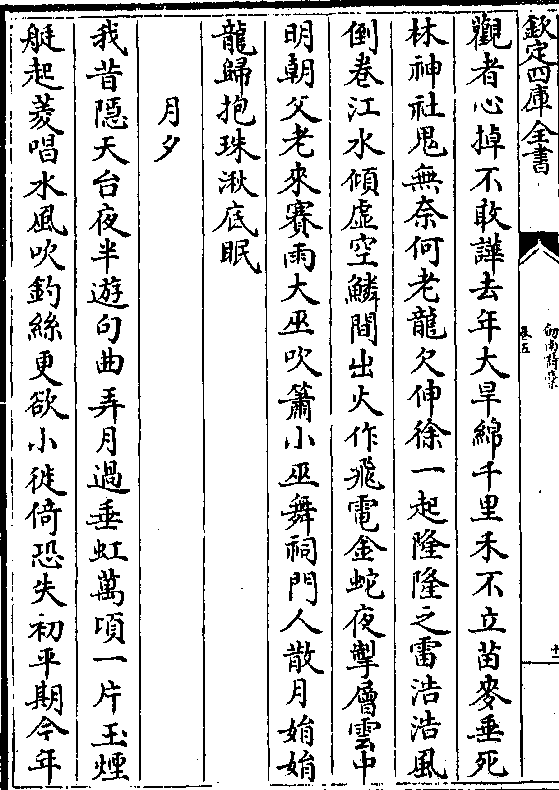 欽定四庫全書
劒南詩藁
卷五
十二
觀者心掉不敢譁去年大旱綿千里禾不立苗麥垂死
林神社鬼無奈何老龍欠伸徐一起隆隆之雷浩浩風
倒卷江水傾虚空鱗間出火作飛電金蛇夜掣層雲中
明朝父老來賽雨大巫吹簫小巫舞祠門人散月娟娟
龍歸抱珠湫底眠
月夕
我昔隠天台夜半遊句曲弄月過垂虹萬頃一片玉煙
艇起菱唱水風吹釣絲更欲小徙倚恐失初平期今年